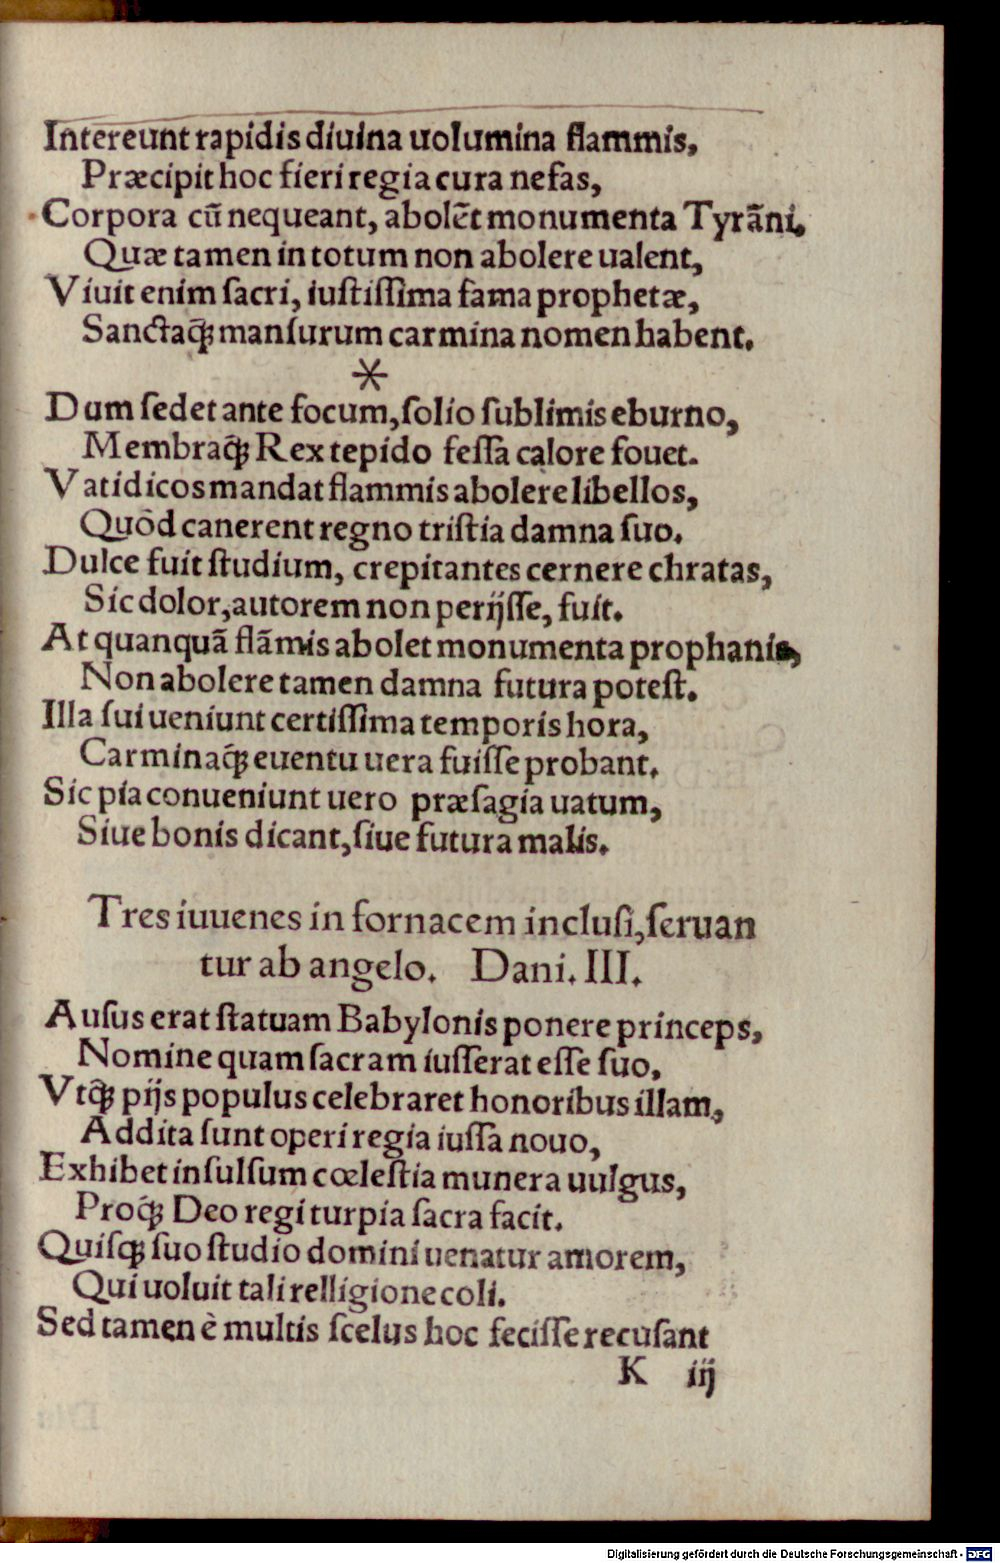 Intereunt rapidis diuina uolumina flammis,
Præcipit hoc fieri regia cura nefas,
Corpora cū nequeant, abolēt monumenta Tyrāni.
Quæ tamen in totum non abolere ualent,
Viuit enim ſacri, iuſtiſſima fama prophetæ,
Sanctaq́ꝫ manſurum carmina nomen habent.
*
Dum ſedet ante focum, ſolio ſublimis eburno,
Membraq́ꝫ Rex tepido feſſa calore fouet.
Vatidicos mandat flammis abolere libellos,
Quôd canerent regno triſtia damna ſuo.
Dulce fuit ſtudium, crepitantes cernere chratas,
Sic dolor, autorem non perijſſe, fuit.
At quanquā flāmis abolet monumenta prophanis,
Non abolere tamen damna futura poteſt.
Illa ſui ueniunt certiſſima temporis hora,
Carminaq́ꝫ euentu uera fuiſſe probant.
Sic pia conueniunt uero præſagia uatum,
Siue bonis dicant, ſiue futura malis.
Tres iuuenes in fornacem incluſi, ſeruan
tur ab angelo. Dani. III.
Auſus erat ſtatuam Babylonis ponere princeps,
Nomine quam ſacram iuſſerat eſſe ſuo.
Vtq́ꝫ pijs populus celebraret honoribus illam,
Addita ſunt operi regia iuſſa nouo,
Exhibet inſulſum cœleſtia munera uulgus,
Proq́ꝫ Deo regi turpia ſacra facit.
Quiſqꝫ ſuo ſtudio domini uenatur amorem,
Qui uoluit tali relligione coli.
Sed tamen è multis ſcelus hoc feciſſe recuſant
K iij
Digitalisierung gefördert durch die Deutsche Forschungsgemeinschaft - DFG